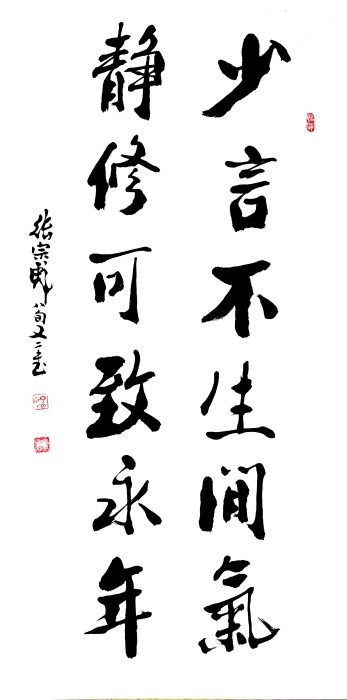 少言不生閒氣
静修可致永年
張宗 旬又二